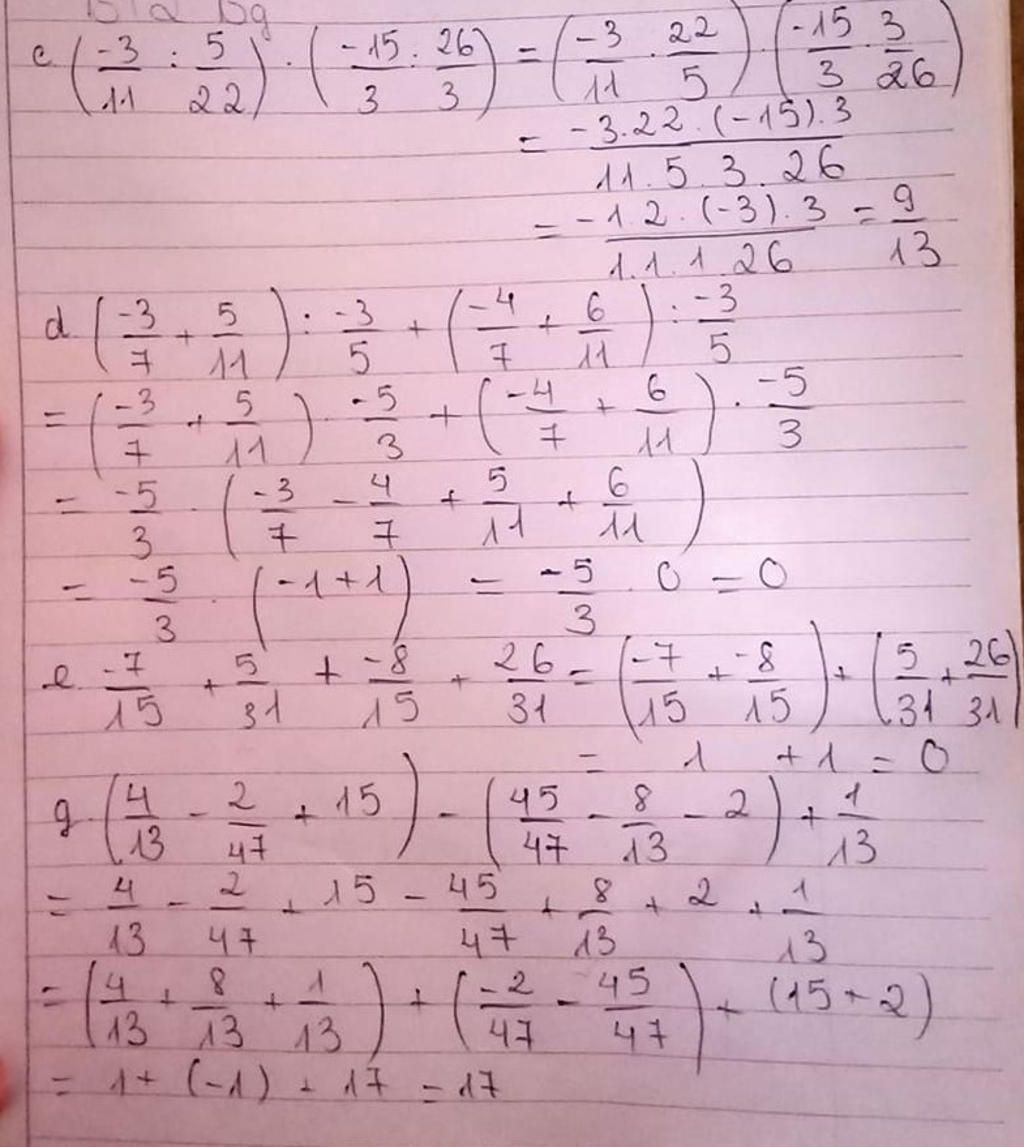 c (-3/11 : 5/22) . (-15/3 : 26/3) = (-3/11 . 22/5) . (-15/3 . 3/26)
= -3.22.(-15).3 / 11.5.3.26
= -1.2.(-3).3 / 1.1.1 26 = 9/13
d (-3/7 + 5/11) : -3/5 + (-4/7 + 6/11) : -3/5
= (-3/7 + 5/11) . -5/3 + (-4/7 + 6/11) . -5/3
= -5/3 . (-3/7 - 4/7 + 5/11 + 6/11)
= -5/3 . (-1+1) = -5/3 . 0 = 0
e. -7/15 + 5/31 + -8/15 + 26/31 = (-7/15 + -8/15) + (5/31 + 26/31)
= 1 + 1 = 0
g. (4/13 - 2/47 + 15) - (45/47 - 8/13 - 2) + 1/13
= 4/13 - 2/47 + 15 - 45/47 + 8/13 + 2 + 1/13
= (4/13 + 8/13 + 1/13) + (-2/47 - 45/47) + (15 + 2)
= 1 + (-1) + 17 = 17